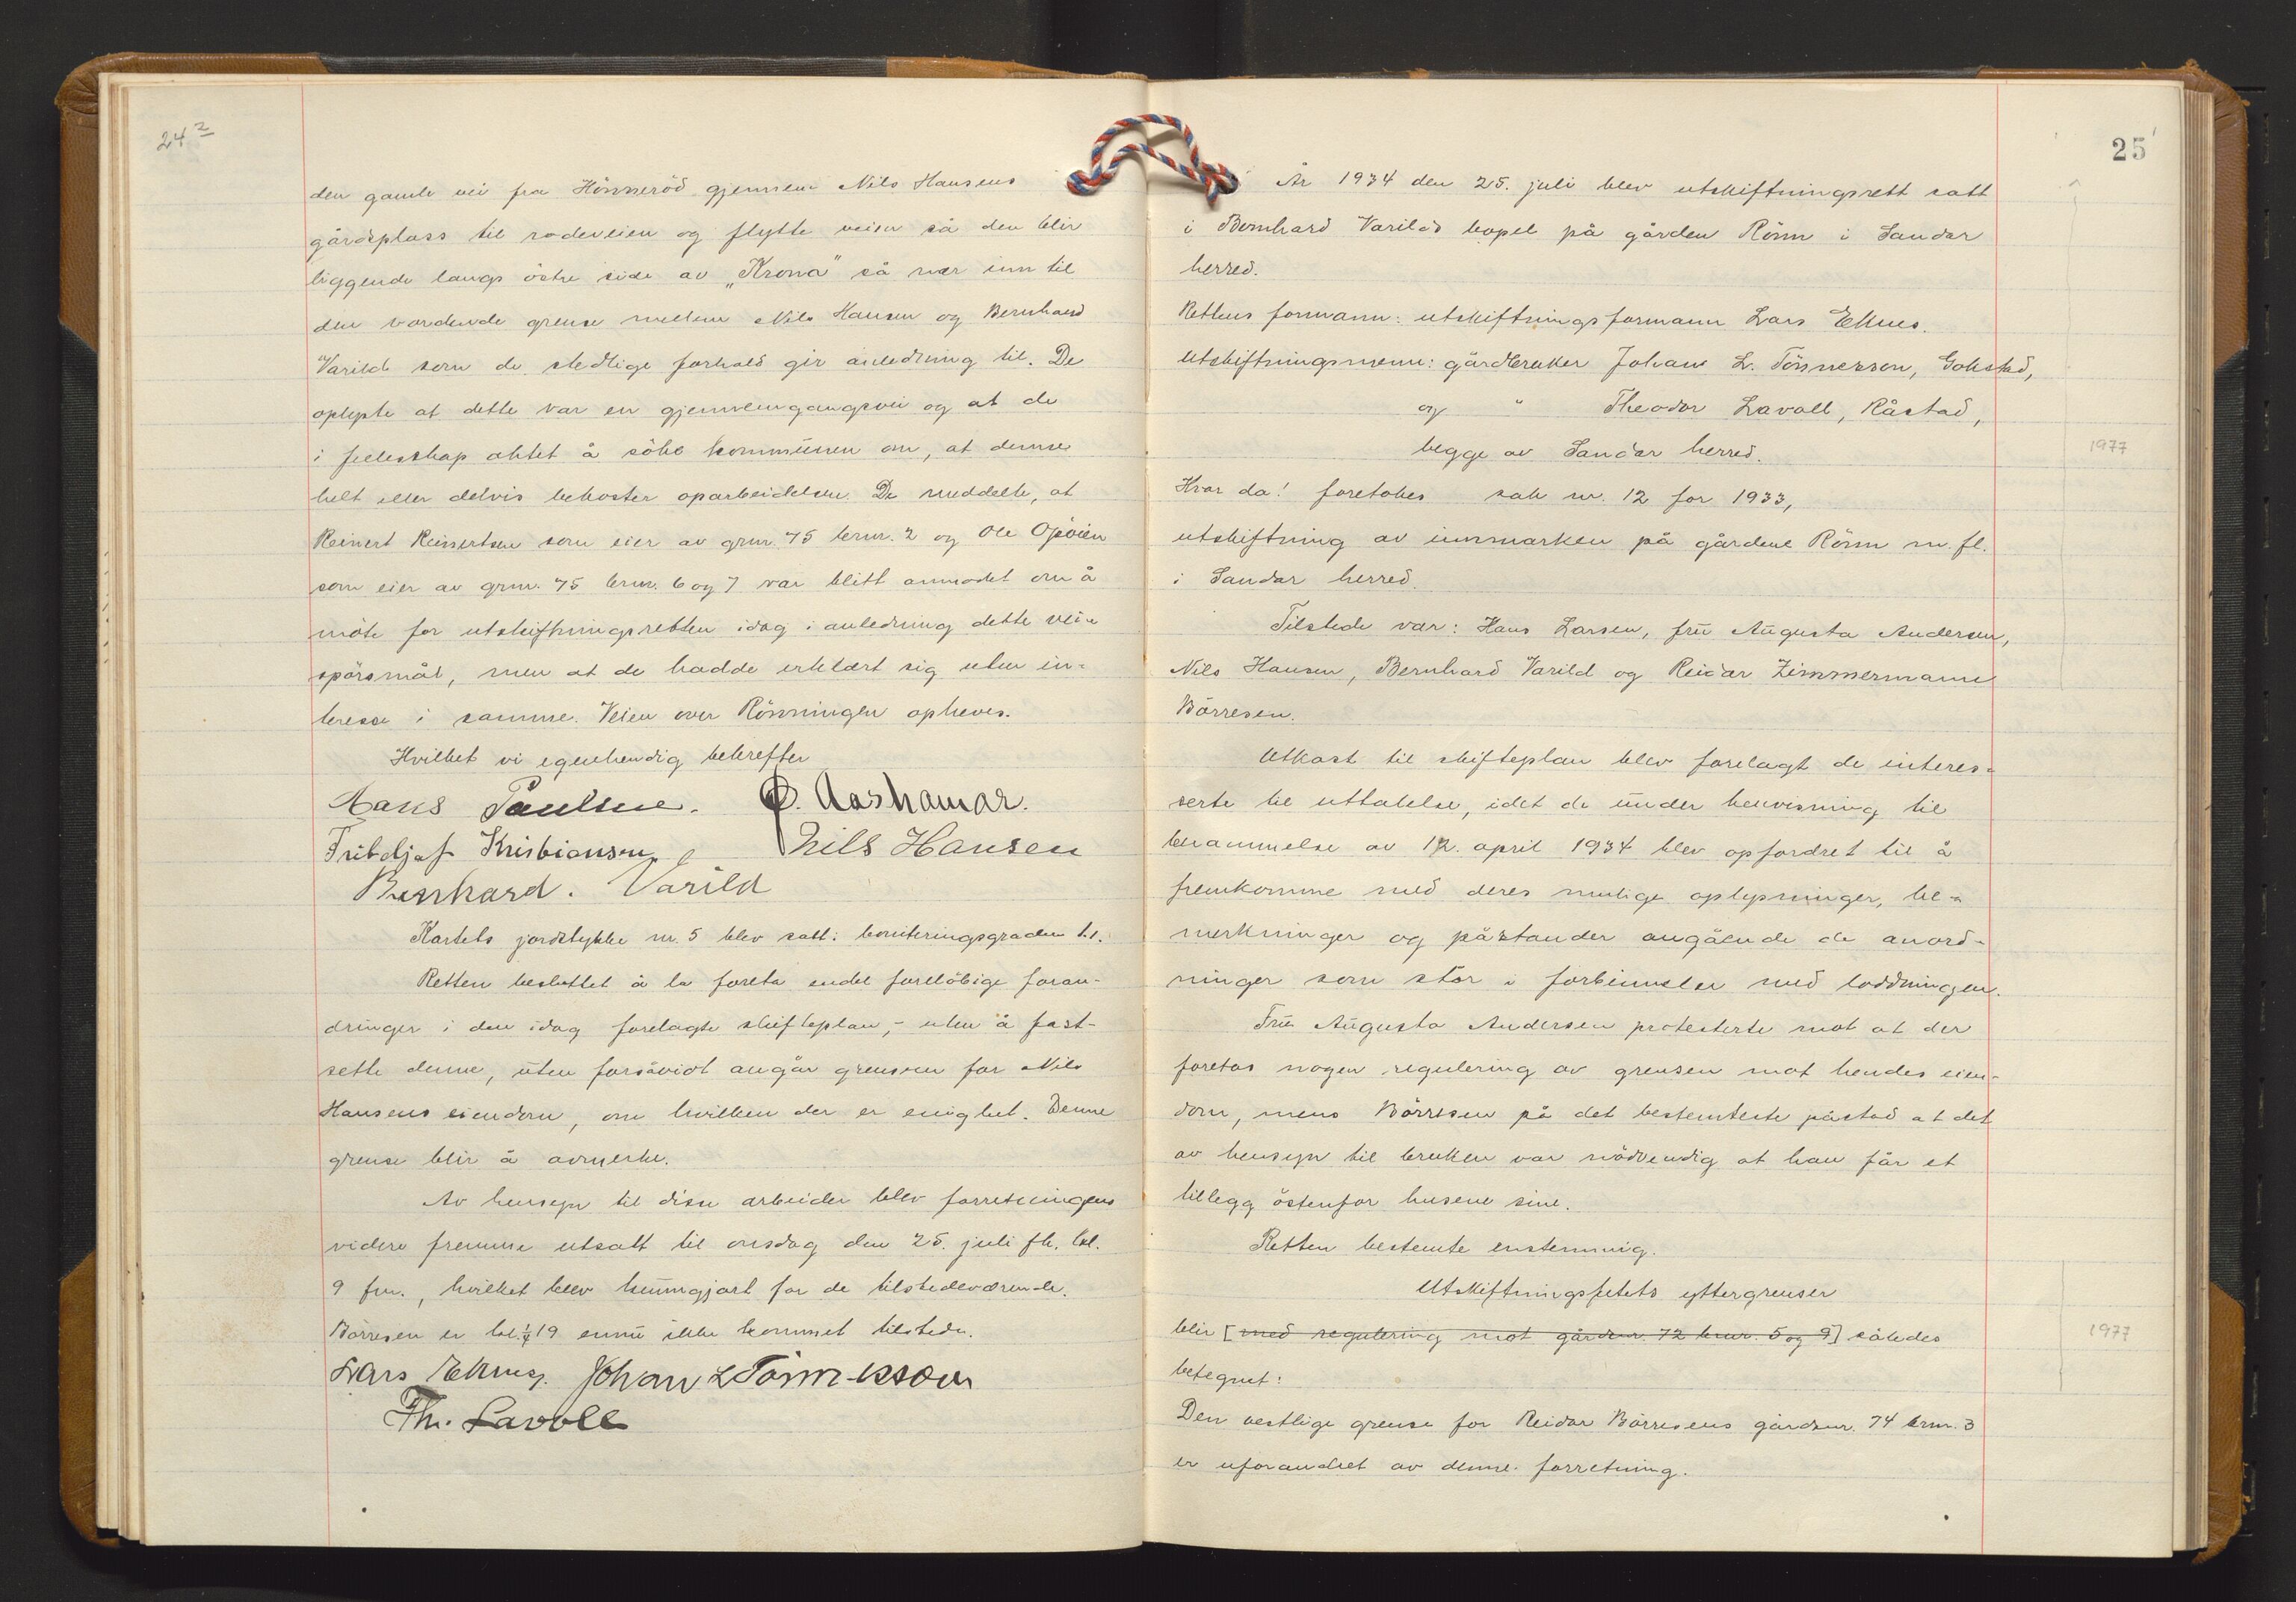 24²
den gamle vei fra Hönneröd gjennem Nils Hansens
gårdsplass til rodeveien og flytte veien så den blir
liggende langs östre side av „Krona" så nær inn til
den vordende grense mellem Nils Hansen og Bernhard
Varild som de stedlige forhold gir anledning til. De
oplyste at dette var en gjennemgangsvei og at de
i fellesskap aktet å söke kommunen om, at denne
helt eller delvis bekoster oparbeidelsen. De meddelte, at
Reinert Reinertsen som eier av grnr. 75 brnr. 2 og Ole
som eier av grnr. 75 brnr. 6 og 7 var blitt anmodet om å
möte for utskiftningsretten idag i anledning dette vei-
spörsmål, men at de hadde erklært sig uten in-
teresse i samme. Veien over Rönningen opheves.
Hvilket vi egenhendig bekrefter
Hans Paulsen. O. Aashamar.
Fritdjof Kristiansen Nils Hansen
Bernhard. Varild
Kartets jordstykke nr. 5 blev satt i boniteringsgraden 1.1.
Retten besluttet å la foreta endel forelöbige foran-
dringer i den idag forelagte skifteplan, - uten å fast-
sette denne, uten forsåvidt angår grensen for Nils
Hansens eiendom, om hvilken der er enighet. Denne
grense blir å avmerke.
Av hensyn til disse arbeider blev forretningens
videre fremme utsatt til onsdag den 25. juli fk. kl.
9 fm., hvilket blev kunngjort for de tilstedeværende.
Börresen er kl. 19 ennu ikke kommet tilstede.
Lars Eknes. Johan L Tönnesson
Th. Lavoll
25
År 1934 den 25. juli blev utskiftningsrett satt
i Bernhard Varilds bopel på gården Rönn i Sandar
herred.
Rettens formann: utskiftningsformann Lars Eknes.
Utskiftningsmenn: gårdbruker Johan L. Tönnesson, Gokstad,
og " Theodor Lavoll, Råstad,
begge av Sandar herred.
1977
Hvor da! foretokes sak nr. 12 for 1933,
utskiftning av innmarken på gårdene Rönn m. fl.
i Sandar herred.
Tilstede var: Hans Larsen, fru Augusta Andersen,
Nils Hansen, Bernhard Varild og Reidar Zimmermann
Börresen.
Utkast til skifteplan blev forelagt de interes-
serte til uttalelse, idet de under henvisning til
berammelse av 12. april 1934 blev opfordret til å
fremkomme med deres mulige oplysninger, be-
merkninger og påstander angående de anord-
ninger som står i forbinnelse med loddningen.
Fru Augusta Andersen protesterte mot at der
foretas nogen regulering av grensen mot hendes eien-
dom, mens Börresen på det bestemteste påstod at det
av hensyn til bruken var nödvendig at han får et
tillegg östenfor husene sine.
Retten bestemte enstemmig.
Utskiftningsfeltets yttergrenser
blir [med regulering mot gårdsnr. 72 brnr. 5 og 9] således
1977
betegnet:
Den vestlige grense for Reidar Börresens gårdsnr. 74 brnr. 3
er uforandret av denne forretning.